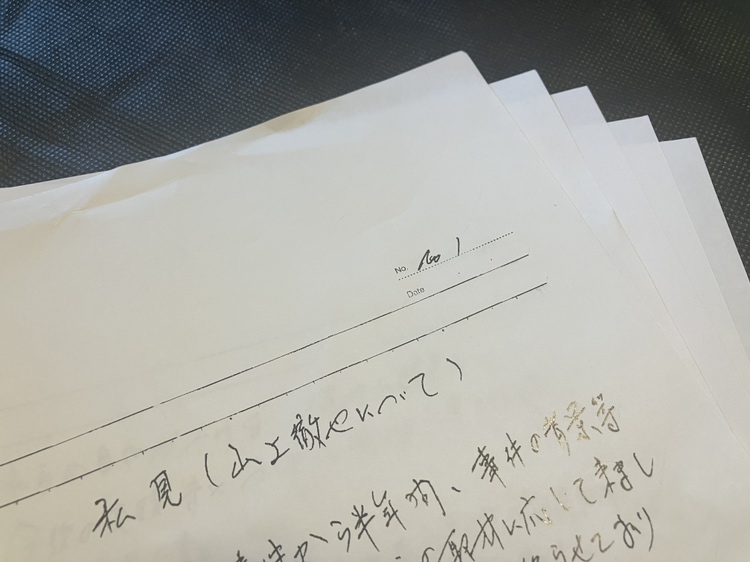 No. No 1
Date
私見(山上徹也について)
事件から半年間、事件の背景等
の取材に応じて来まし
らせており